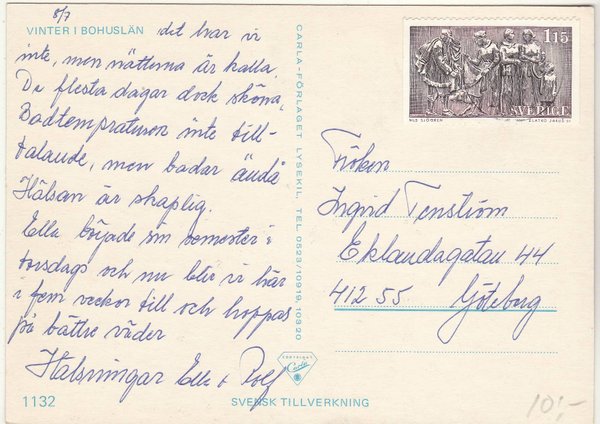 8/7
VINTER I BOHUSLÄN det har vi
inte, men nätterna är kalla.
De flesta dagar dock sköna.
Badtempraturen inte till-
talande, men badar ändå
Hälsan är skaplig.
Ella började sin semester i
torsdags och nu blir vi här
i fem veckor till och hoppas
på bättre väder
Hälsningar Ella & Rolf
1132
SVENSK TILLVERKNING
CARLA-FÖRLAGET LYSEKIL, TEL 0523/10919, 10320
Carla
1.15
SVERIGE
NILS SJÖGREN
ZLATKO JAKUS SC
Fröken
Ingrid Tenström
Eklandagatan 44
412 55 Göteborg
10:-